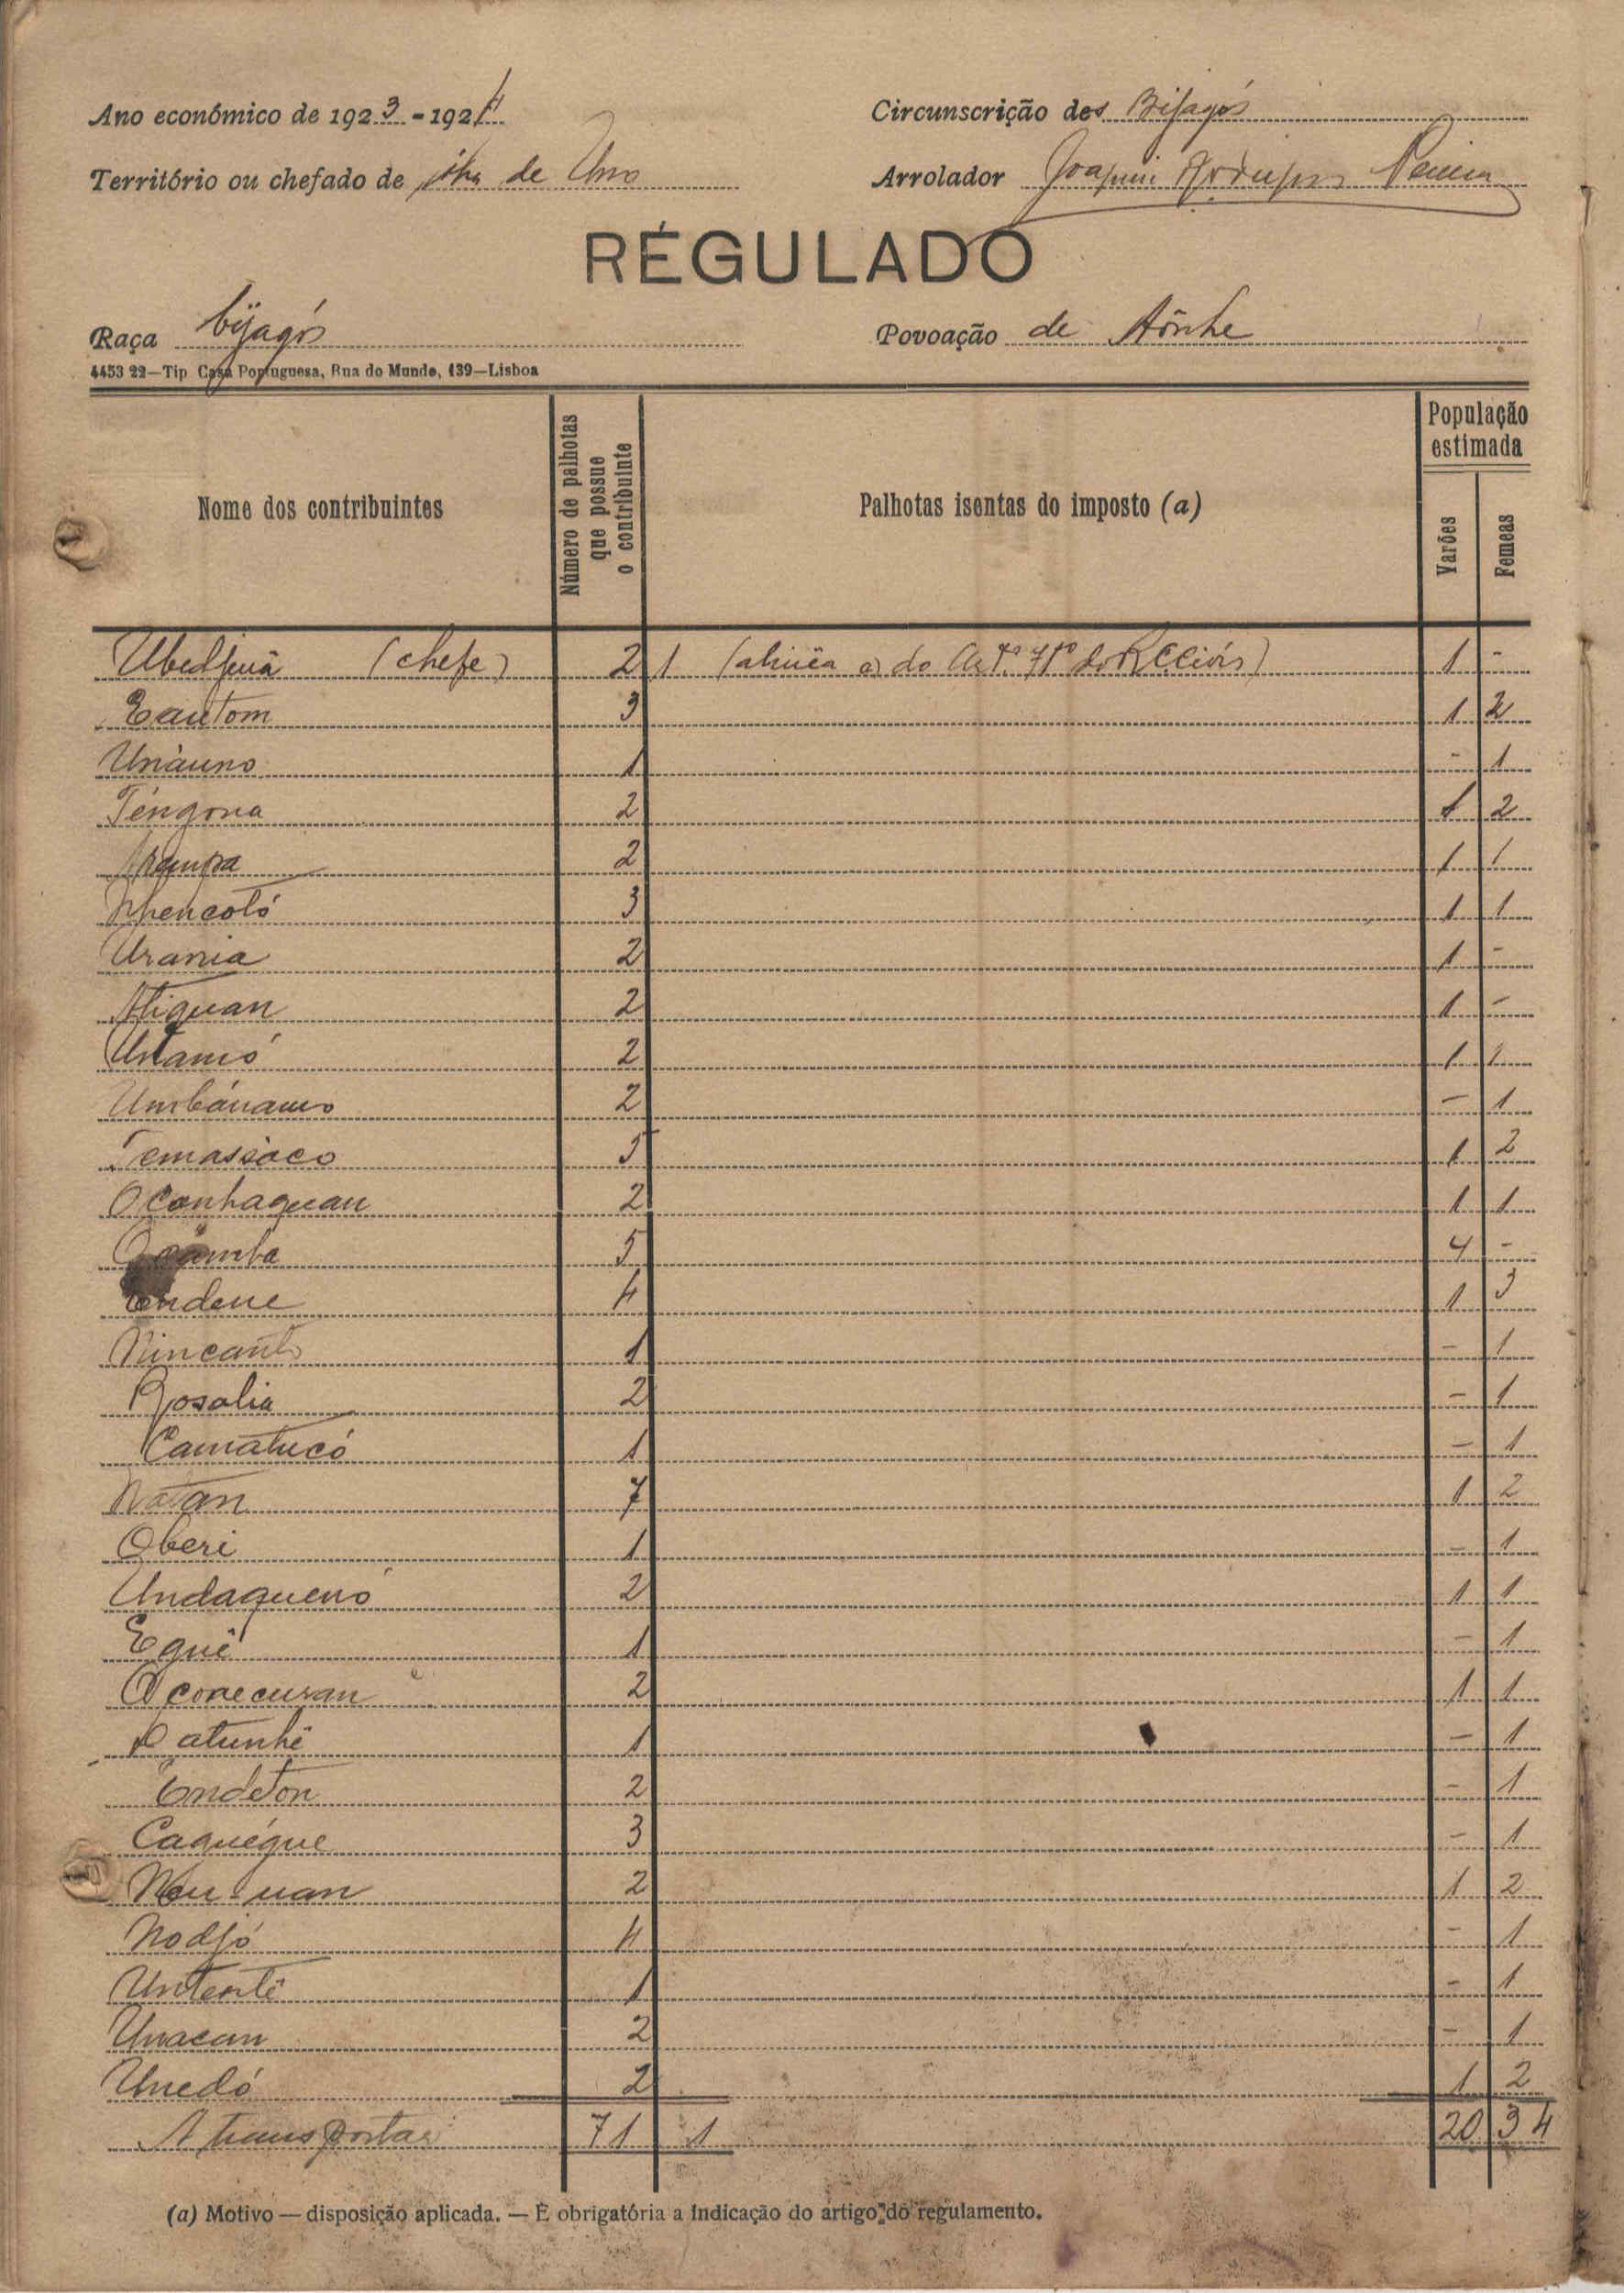 Ano económico de 1923-1924
Circunscrição des Bijagós
Território ou chefado de ilha de Uno
Arrolador Joaquim Rodrigues Pereira
RÉGULADO
Raça bijagós
Povoação de Aônhe
4453 22—Tip Casa Portuguesa, Rua do Mundo, 139—Lisboa
Nome dos contribuintes
Número de palhotas que possue o contribuinte
Palhotas isentas do imposto (a)
População estimada
Varões
Femeas
(chefe) 2 1 (alinêa a) do Artº 71º do R. Civis) 1 -
Eantom 3 1 2
Unàuno 1 - 1
Téngona 2 1 2
2 1 1
Nhencotó 3 1 1
Urania 2 1 -
Atiguan 2 1 -
Untamó 2 1 1
Umbánamo 2 - 1
Temassaco 5 1 2
Oconhaguan 2 1 1
5 4 -
Endene 4 1 3
Nincanto 1 - 1
Rosalia 2 - 1
Camatucó 1 - 1
Natan 7 1 2
Oberi 1 - 1
Undaquenó 2 1 1
Eguê 1 - 1
Oconecusan 2 1 1
Catunhê 1 - 1
Endeton 2 - 1
Caquégue 3 - 1
2 1 2
Nodjó 4 - 1
Untentê 1 - 1
Unacan 2 - 1
Unedó 2 1 2
A transportar 71 1 20 34
(a) Motivo — disposição aplicada. — É obrigatória a indicação do artigo do regulamento.